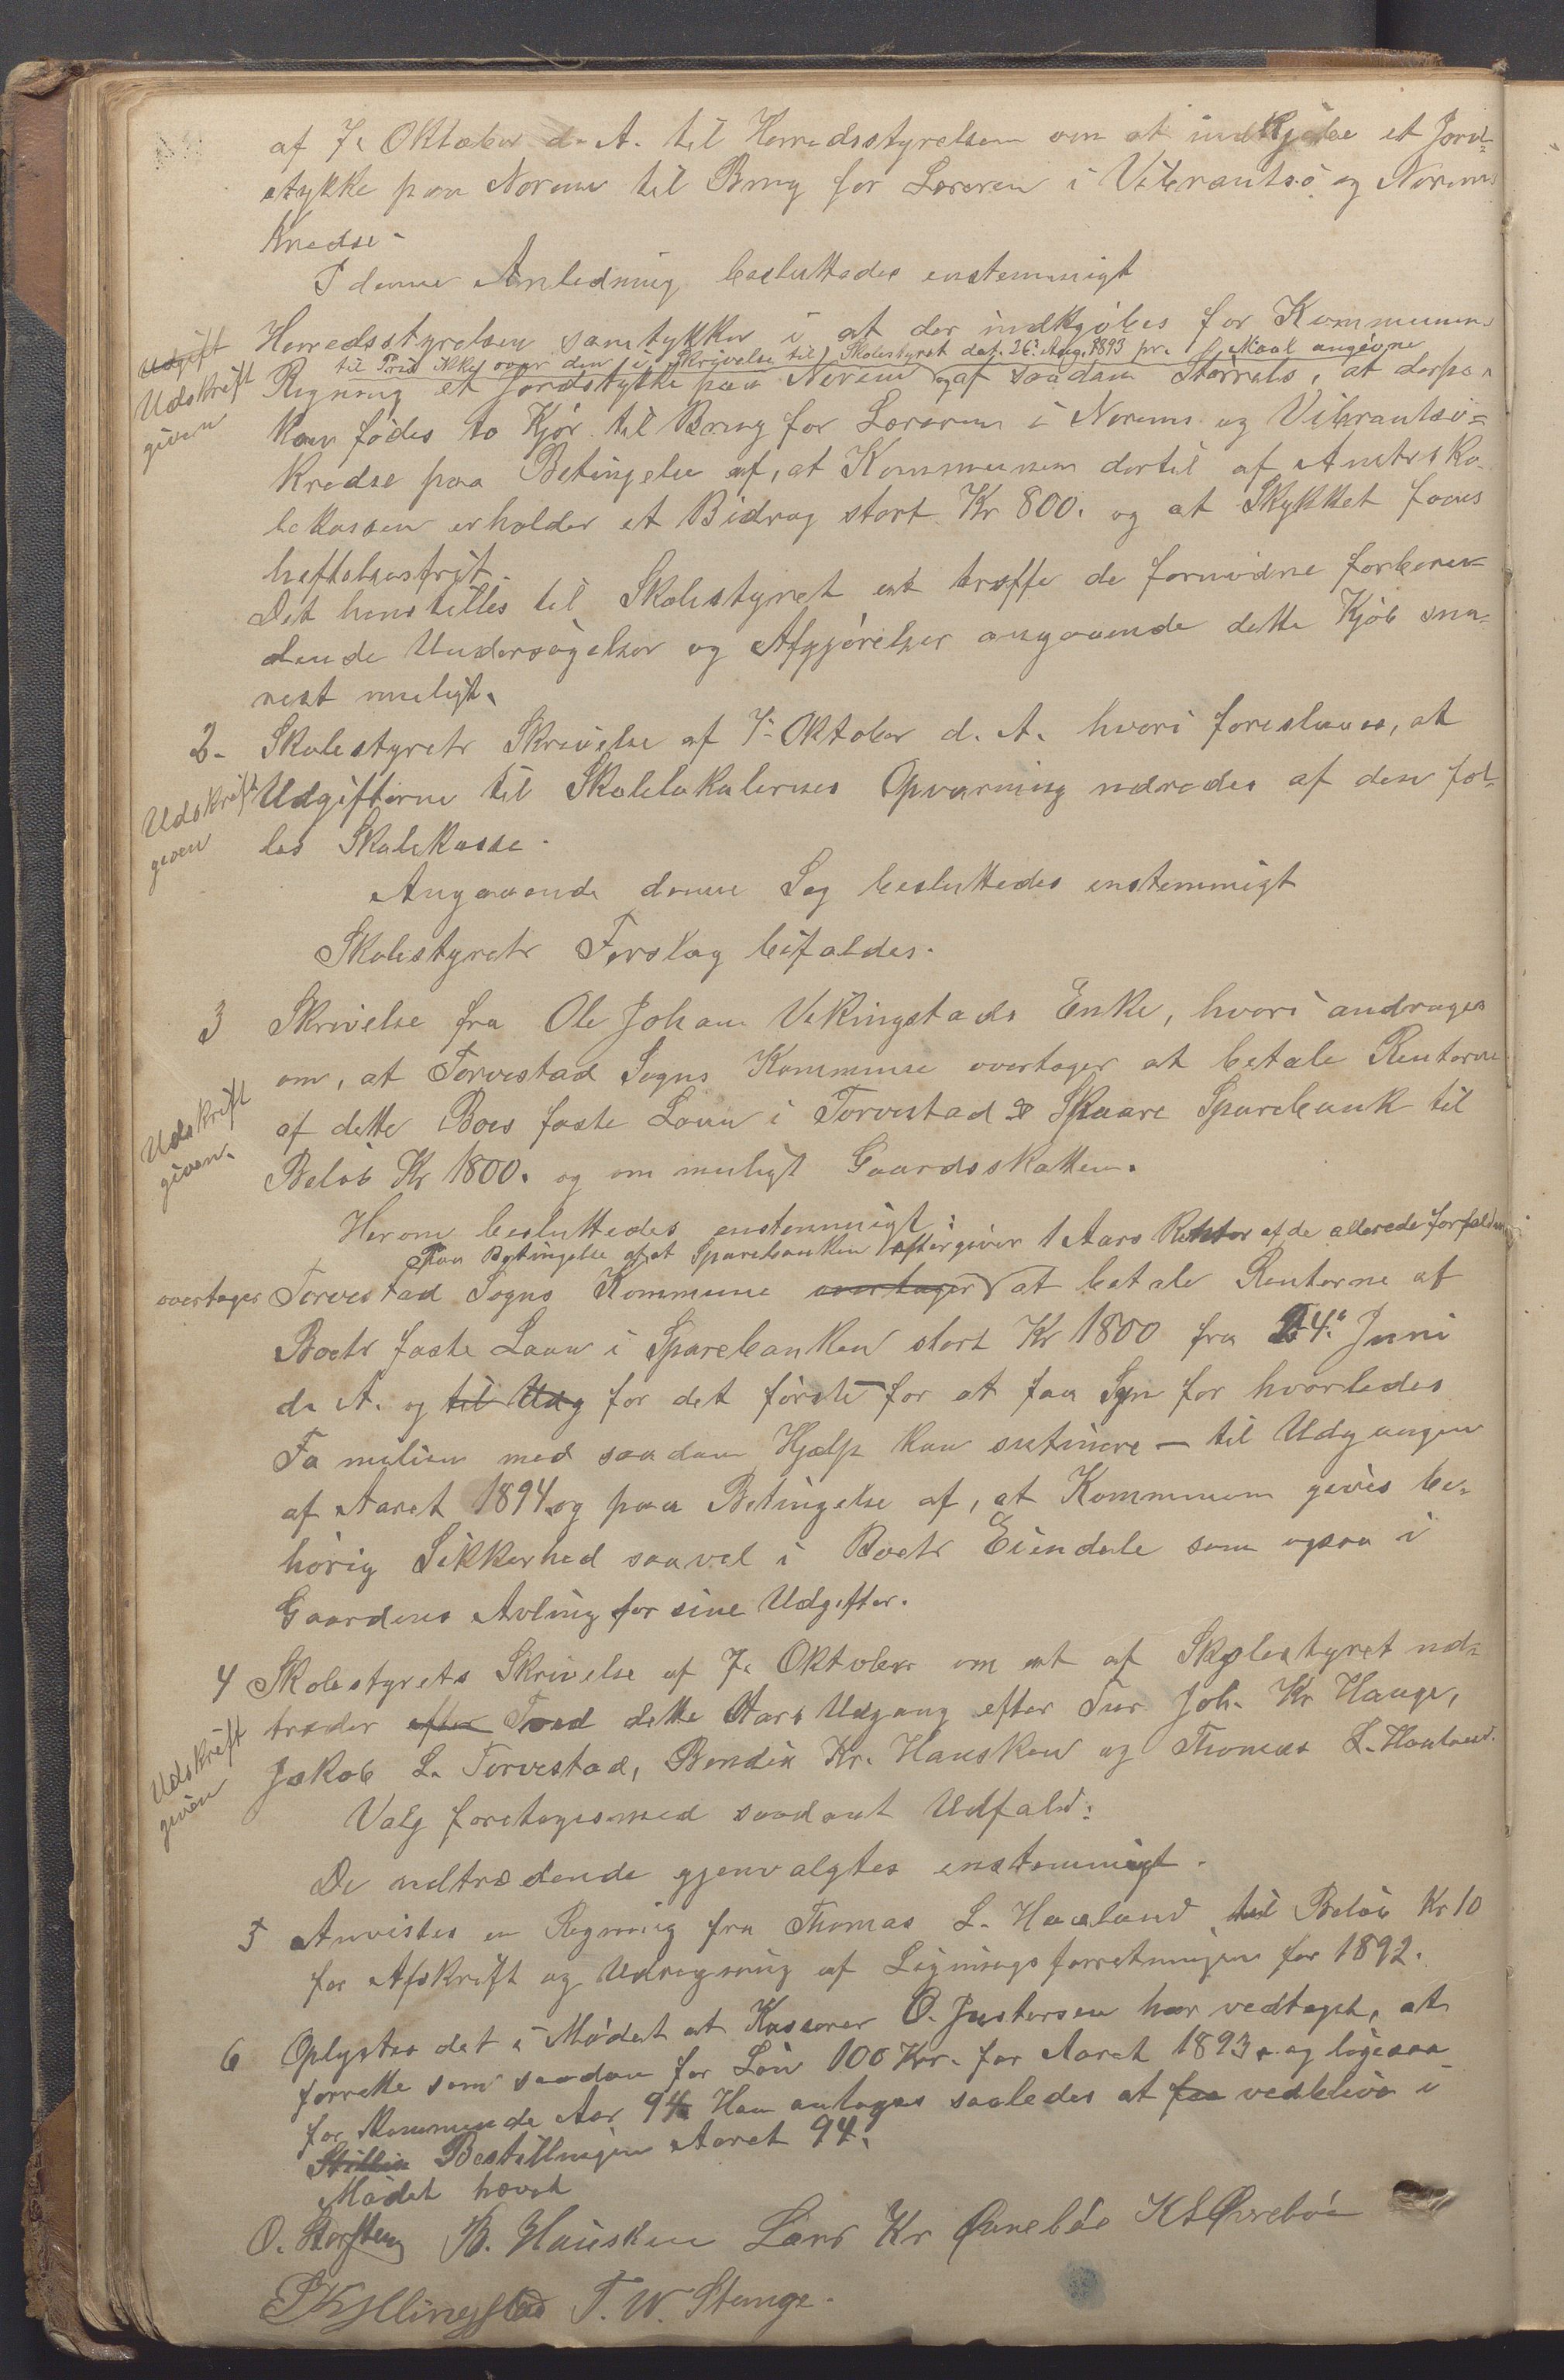 af 7. Oktober d. A. til Herredsstyrelsen om at indkjøbe et Jord-
stykke paa Norem til Brug for Læreren i Vibrantsø og Norems
Kredse.
I denne Anledning besluttedes enstemmigt
Udgift
Udskrift
given
Herredsstyrelsen samtykker i at der indkjøbes for Kommunens
til Pris ikke over den i Skrivelse til Skolestyret dat. 26. Aug. 1893 pr. Maal angivne
Regning et Jordstykke paa Norem og af saadan Størrelse, at derpaa
kan fødes to Kjør til Brug for Læreren i Norems og Vibrantsø-
Kredse paa Betingelse af, at Kommunen dertil af Amtssko-
lekassen erholder et Bidrag stort Kr 800. og at Stykket faaes
heftelsesfrit.
Det henstilles til Skolestyret at træffe de fornødne forbere-
dende Undersøgelser og Afgjørelser angaaende dette Kjøb sna-
rest muligt.
2. Skolestyrets Skrivelse af 7. Oktober d. A. hvori foreslaaes, at
Udskrift
given
Udgifterne til Skolelokalernes Opvarming udredes af den fæl-
les Skolekasse.
Angaaende denne Sag besluttedes enstemmigt
Skolestyrets Forslag bifaldes.
3 Skrivelse fra Ole Johan Vikingstads Enke, hvori andrages
om, at Torvestad Sogns Kommune overtager at betale Renterne
Udskrift
given.
af dette Boes faste Laan i Torvestad & Skaare Sparebank til
Beløb Kr 1800. og om muligt Gaardsskatten.
Herom besluttedes enstemmigt:
Paa Betingelse af at Sparebanken eftergiver 1 Aars Renter af de allerede forfaldne
overtager Torvestad Sogns Kommune overtager at betale Renterne af
Boets faste Laan i Sparebanken stort Kr 1800 fra 24. Juni
d. A. og til Udg for det første for at faa Syn for hvorledes
Familien med saadan Hjælp kan sutinere – til Udgangen
af Aaret 1894 og paa Betingelse af, at Kommunen gives be-
hørig Sikkerhed saavel i Boets Eiendele som ogsaa i
Gaardens Avling for sine Udgifter.
4 Skolestyrets Skrivelse af 7. Oktober om at af Skolestyret ud-
træder efter ved dette Aars Udgang efter Tur Joh. Kr Hauge,
Udskrift
given
Jakob L. Torvestad, Bendix Kr. Hausken og Thomas L. Haaland.
Valg foretages med saadant Udfald:
De udtrædende gjenvalgtes enstemmigt.
5 Anvistes en Regning fra Thomas L. Haaland til Beløb Kr 10
for Afskrift og Udregning af Ligningsforretningen for 1892.
6 Oplystes det i Mødet at Kasserer O. Justersen har vedtaget, at
forrette som saadan for Løn 100 Kr. for Aaret 1893. og ligesaa
for kommende Aar 94. Han antages saaledes at faa vedblive i
Stillin Bestillingen Aaret 94.
Mødet hævet
O. Storsteen B. Hausken Lars Kr Øvrebøe K S Øvrebøe
S Kyllingstad T. W. Stange.